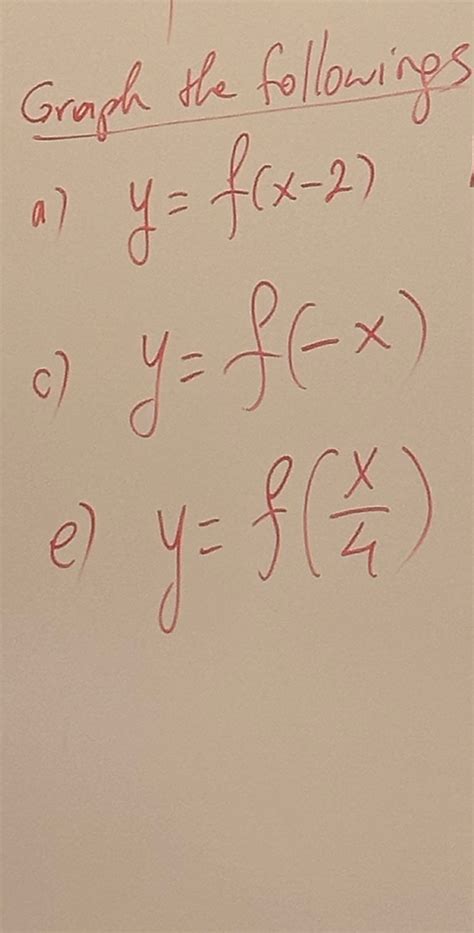 Graph the followings
a) y = f(x-2)
c) y = f(-x)
e) y = f(x/4)